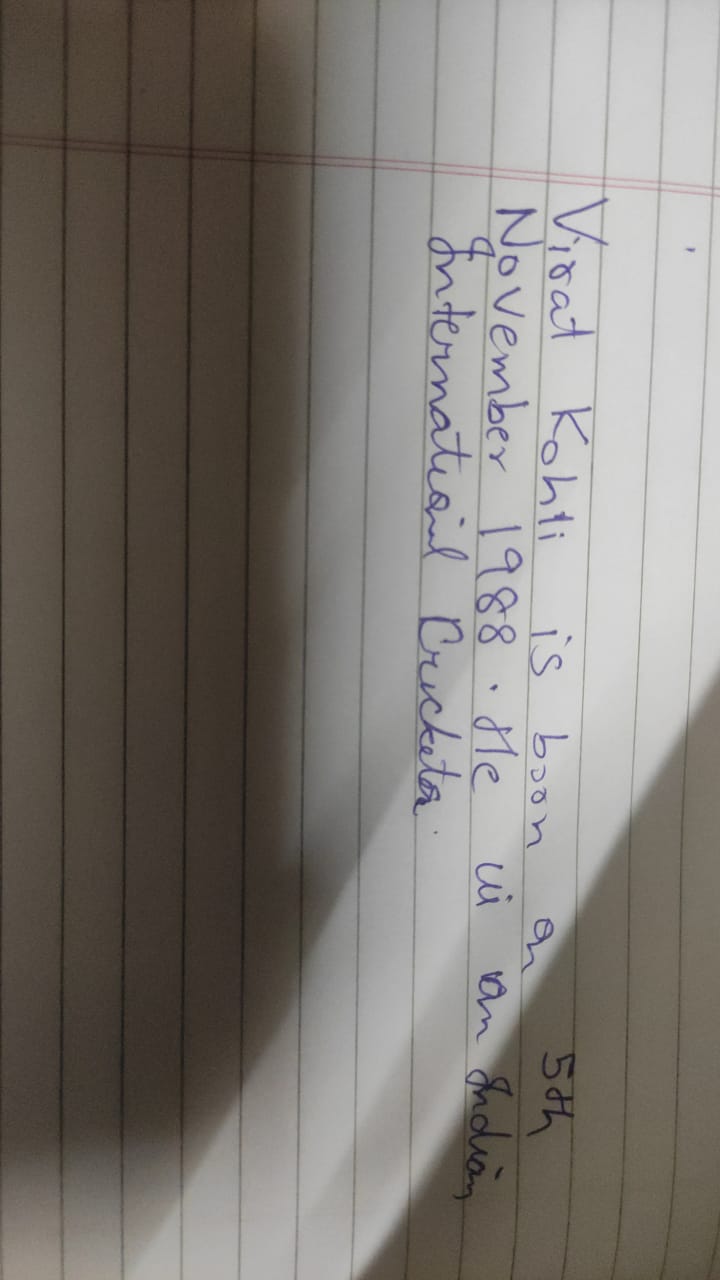 Virat Kohli is born on 5th
November 1988. He is an Indian
International Cricketer.